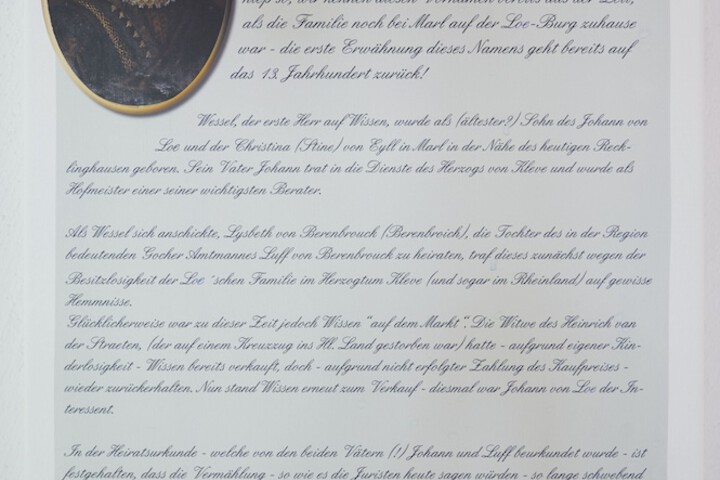 so, wir kennen diesen Vornamen bereits aus der Zeit,
als die Familie noch bei Marl auf der Loe-Burg zuhause
war - die erste Erwähnung dieses Namens geht bereits auf
das 13. Jahrhundert zurück!
Wessel, der erste Herr auf Wissen, wurde als (ältester?) Sohn des Johann von
Loe und der Christina (Stine) von Eyll in Marl in der Nähe des heutigen Reck-
linghausen geboren. Sein Vater Johann trat in die Dienste des Herzogs von Kleve und wurde als
Hofmeister einer seiner wichtigsten Berater.
Als Wessel sich anschickte, Lysbeth von Berenbrouck (Berenbroich), die Tochter des in der Region
bedeutenden Gocher Amtmannes Luff von Berenbrouck zu heiraten, traf dieses zunächst wegen der
Besitzlosigkeit der Loe´schen Familie im Herzogtum Kleve (und sogar im Rheinland) auf gewisse
Hemmnisse.
Glücklicherweise war zu dieser Zeit jedoch Wissen "auf dem Markt". Die Witwe des Heinrich van
der Straeten, (der auf einem Kreuzzug ins Hl. Land gestorben war) hatte - aufgrund eigener Kin-
derlosigkeit - Wissen bereits verkauft, doch - aufgrund nicht erfolgter Zahlung des Kaufpreises -
wieder zurückerhalten. Nun stand Wissen erneut zum Verkauf - diesmal war Johann von Loe der In-
teressent.
In der Heiratsurkunde - welche von den beiden Vätern (!) Johann und Luff beurkundet wurde - ist
festgehalten, dass die Vermählung - so wie es die Juristen heute sagen würden - so lange schwebend